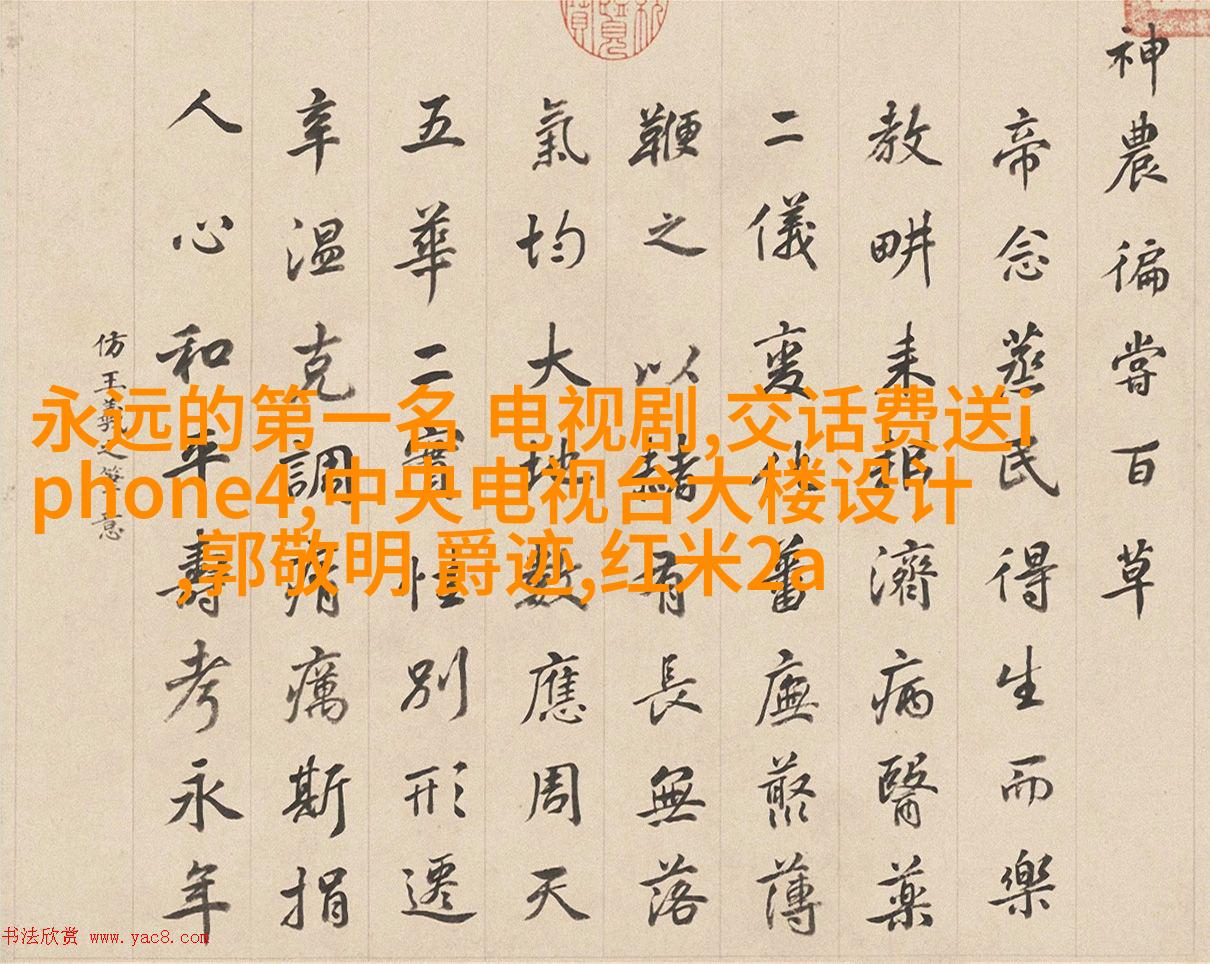 神農徧嘗百草
帝念蒸民得生而樂
教畊耒耜濟病醫藥
二儀變化蕃廡藂薄
鞭之以赭有長無落
氣均大地數應周天
五華二實別形遷
辛温克調癘斯捐
人心和平壽考永年
仿王羲之筆意
永远的第一名 电视剧,交话费送i
phone4,中央电视台大楼设计
,郭敬明 爵迹,红米2a
书法欣赏 www.yac8.com